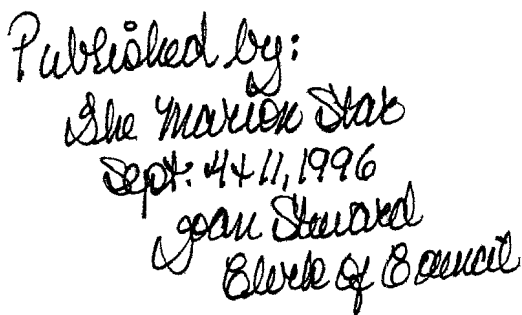 Published by:
The Marion Star
Sept. 4 & 11, 1996
Joan Steward
Clerk of Council